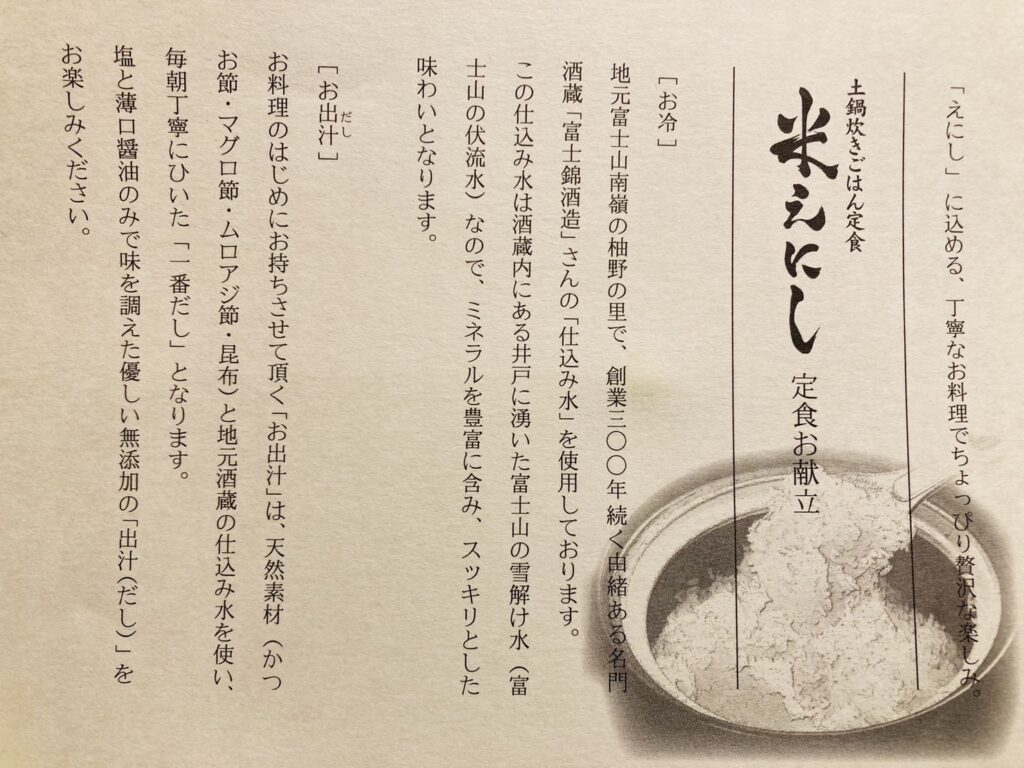 「えにし」に込める、丁寧なお料理でちょっぴり贅沢な楽しみ。
土鍋炊きごはん定食
米えにし 定食お献立
［お冷］
地元富士山南嶺の柚野の里で、創業三〇〇年続く由緒ある名門
酒蔵「富士錦酒造」さんの「仕込み水」を使用しております。
この仕込み水は酒蔵内にある井戸に湧いた富士山の雪解け水（富
士山の伏流水）なので、ミネラルを豊富に含み、スッキリとした
味わいとなります。
［お出汁］
だし
お料理のはじめにお持ちさせて頂く「お出汁」は、天然素材（かつ
お節・マグロ節・ムロアジ節・昆布）と地元酒蔵の仕込み水を使い、
毎朝丁寧にひいた「一番だし」となります。
塩と薄口醤油のみで味を調えた優しい無添加の「出汁（だし）」を
お楽しみください。